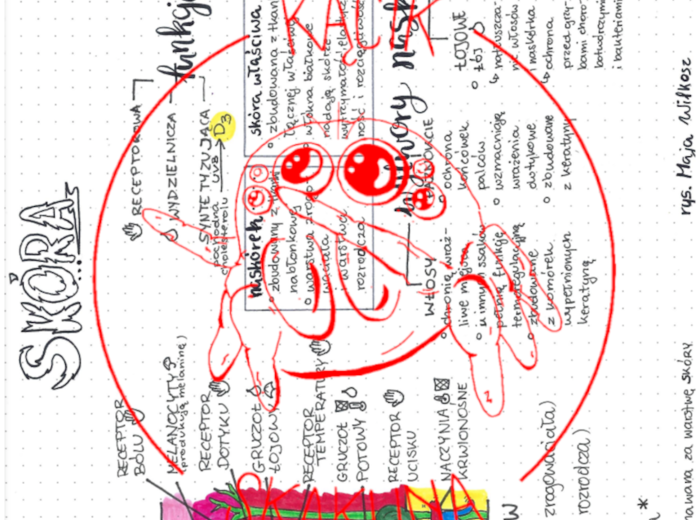 SKÓRA
RECEPTOROWA
WYDZIELNICZA
funkcje
SYNTETYZUJĄCA
pochodna cholesterolu UVB → D3
RECEPTOR
BÓLU
MELANOCYTY
(produkują melaninę)
RECEPTOR
DOTYKU
GRUCZOŁ
ŁOJOWY
RECEPTOR
TEMPERATURY
GRUCZOŁ
POTOWY
RECEPTOR
UCISKU
NACZYNIA
KRWIONOŚNE
naskórek
zbudowany z tkanki
nabłonkowej
warstwa zrogo-
waciała
i warstwa
rozrodcza
skóra właściwa
zbudowana z tkan
łącznej właściwej
włókna białkowe
nadają skórze
wytrzymałość, elastycz
ność i rozciągliwość
wytwory nask
WŁOSY
chronią waż-
liwe miejsca
u innych ssaków
pełnią funkcję
termoregulacyjną
zbudowane
z komórek
wypełnionych
keratyną
PAZNOKCIE
ochrona
końcówek
palców
wzmacniają
wrażenia
dotykowe
zbudowane
z keratyny
ŁOJOWE
ŁÓJ
natłuszcza-
nie włosów
i naskórka
ochrona
przed grzy-
bami choro-
botwórczymi
i bakteriami
zrogowaciała)
rozrodcza)
rys. Maja Wilkosz
za warstwę skóry.